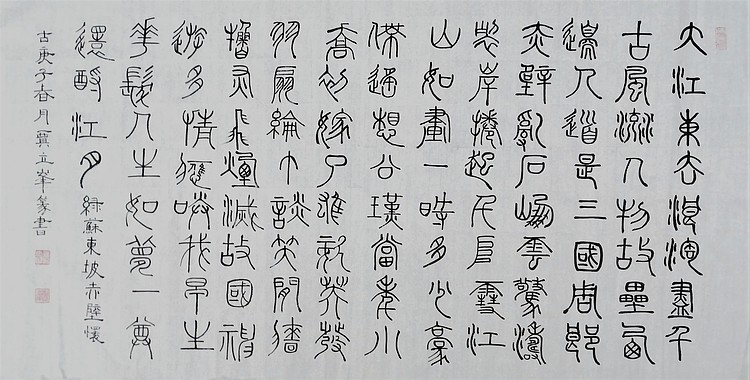 大江東去浪淘盡千
古風流人物故壘西
邊人道是三國周郎
赤壁亂石崩雲驚濤
裂岸捲起千堆雪江
山如畫一時多少豪
傑遙想公瑾當年小
喬初嫁了雄姿英發
羽扇綸巾談笑間檣
櫓灰飛煙滅故國神
遊多情應笑我早生
華髮人生如夢一尊
還酹江月 緑蘇東坡赤壁懷
古庚子春月賈立峯篆書